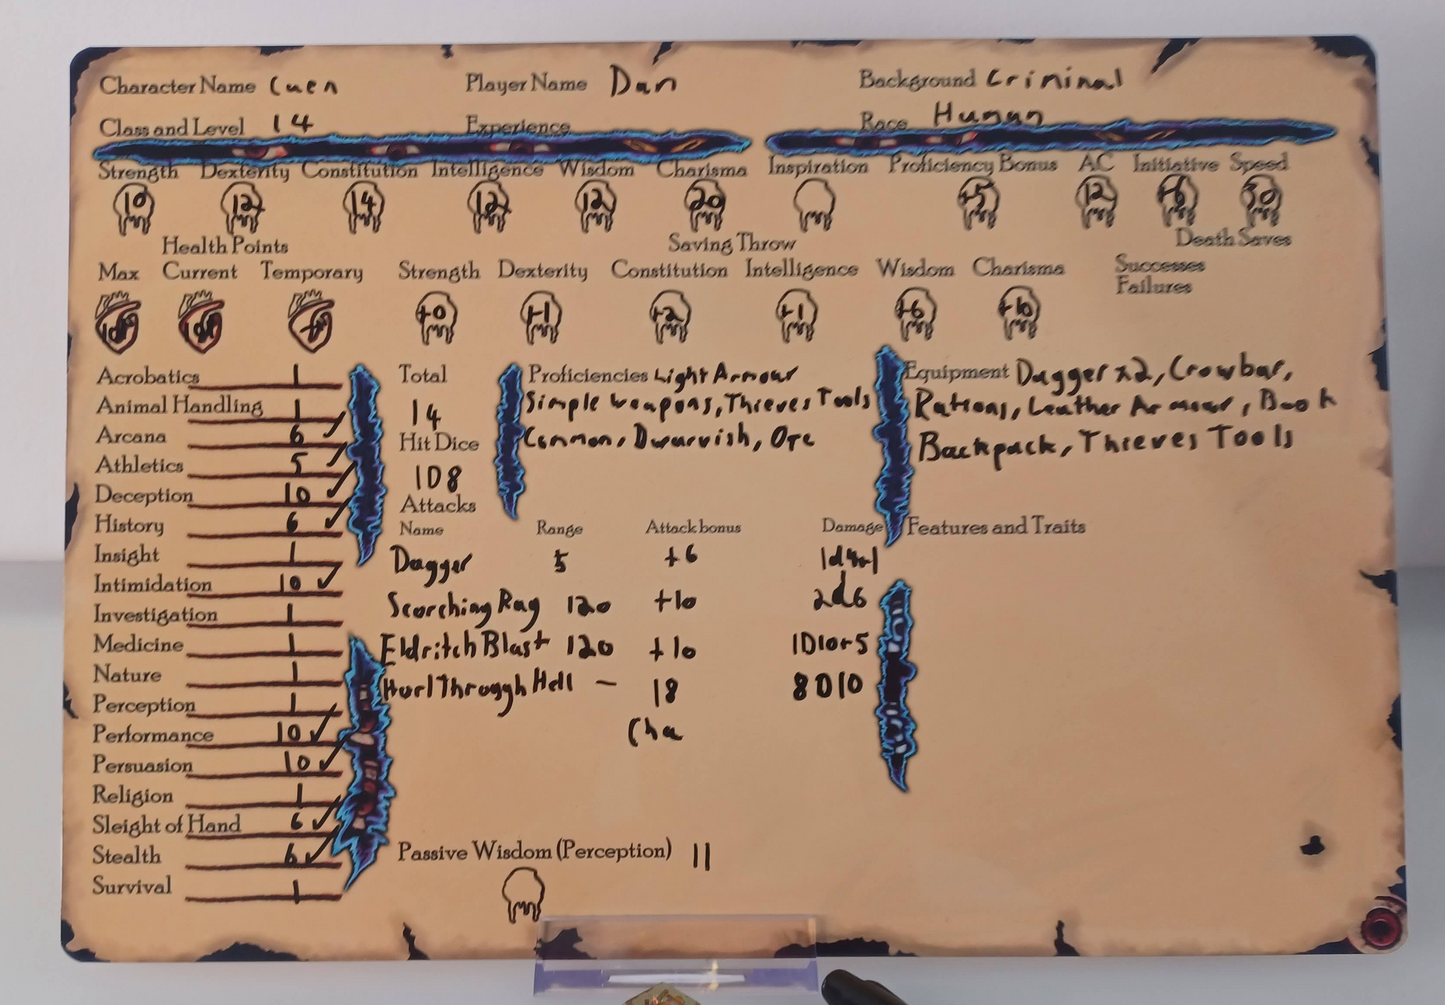 Character Name Cuen Player Name Dan Background Criminal
Class and Level 14 Experience Race Human
Strength Dexterity Constitution Intelligence Wisdom Charisma Inspiration Proficiency Bonus AC Initiative Speed
10 12 14 12 12 20 +5 12 +6 30
Health Points Saving Throw Death Saves
Max Current Temporary Strength Dexterity Constitution Intelligence Wisdom Charisma Successes
Failures
+0 +1 +2 +1 +6 +10
Acrobatics 1
Animal Handling 1
Arcana 6 ✓
Athletics 5 ✓
Deception 10 ✓
History 6 ✓
Insight 1
Intimidation 10 ✓
Investigation 1
Medicine 1
Nature 1
Perception 1
Performance 10 ✓
Persuasion 10 ✓
Religion 1
Sleight of Hand 6 ✓
Stealth 6 ✓
Survival 1
Total
14
Hit Dice
1D8
Proficiencies Light Armour
Simple weapons, Thieves Tools
Common, Dwarvish, Orc
Equipment Dagger x2, Crowbar,
Rations, Leather Armour, Book
Backpack, Thieves Tools
Attacks
Name Range Attack bonus Damage
Dagger 5 +6 1d4+1
Scorching Ray 120 +10 2d6
Eldritch Blast 120 +10 1D10+5
Hurl Through Hell - 18 8D10
Cha
Features and Traits
Passive Wisdom (Perception) 11